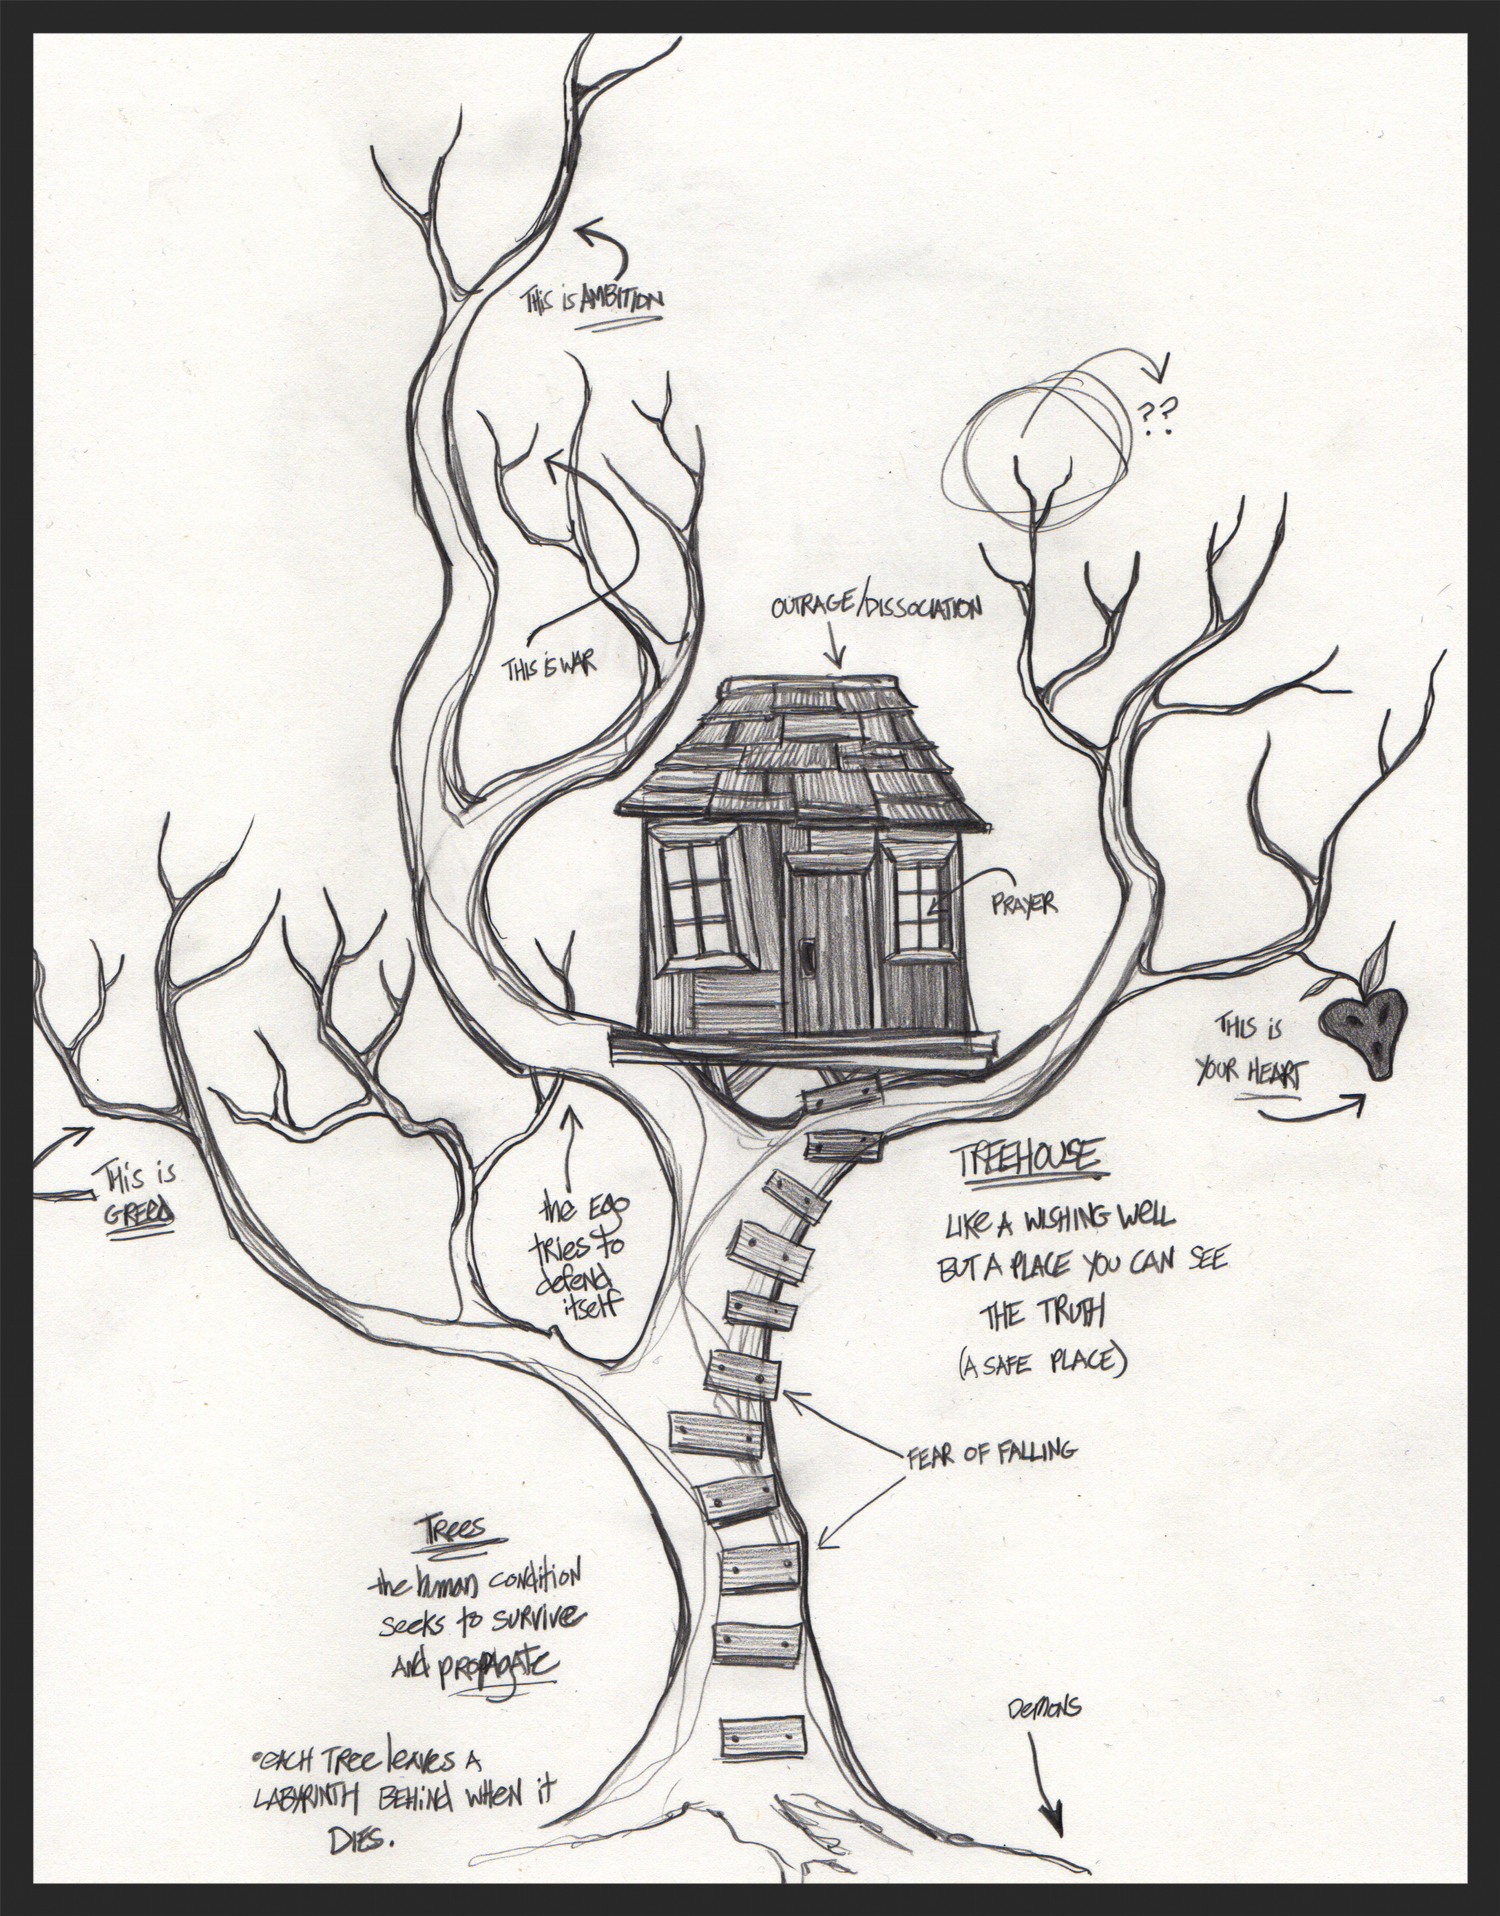 THIS iS AMBITION
??
OUTRAGE/DISSOCIATION
THIS iS WAR
PRAYER
THIS iS
YOUR HEART
THiS is
GREEd
the EGO
TRiES to
dEfEND
itself
TREEHOUSE
LIKE A WISHING WELL
BUT A PLACE YOU CAN SEE
THE TRUTH
(A SAFE PLACE)
FEAR OF FALLING
TREES
the human CONDITION
SEEKS to SURVIVE
ANd PROPAGATE
DEMONS
•EACH TREE leAVES A
LABYRINTH BEHiNd WHEN iT
DIES.